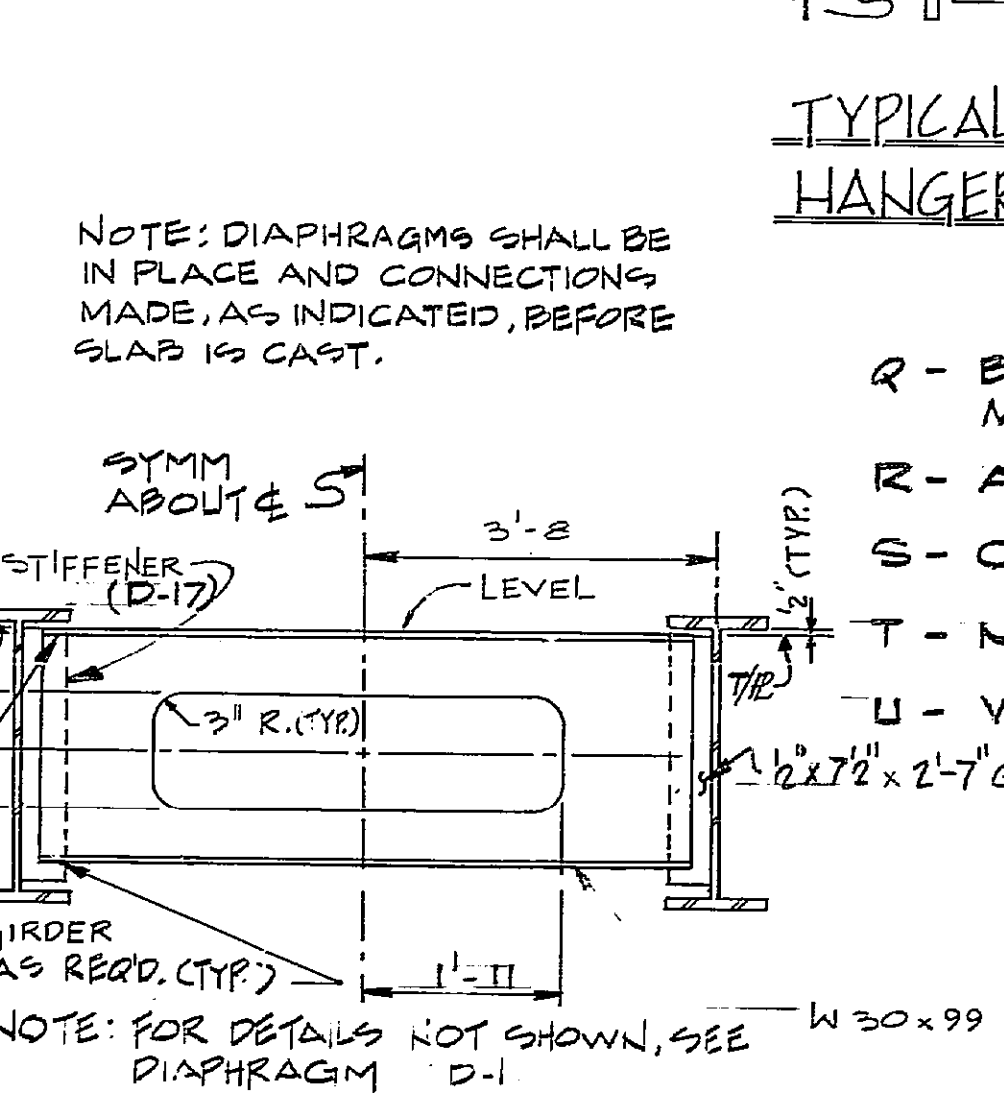 TYPICAL
HANGER
NOTE: DIAPHRAGMS SHALL BE
IN PLACE AND CONNECTIONS
MADE, AS INDICATED, BEFORE
SLAB IS CAST.
Q - B
R - A
S -
T - N
U - V
SYMM
ABOUT ℄ S
3'-8
1/2" (TYP.)
STIFFENER
(D-17)
LEVEL
T/℄
3" R. (TYP.)
1/2" x 7 1/2" x 2'-7"
GIRDER
AS REQ'D. (TYP.)
1'-11
W 30 x 99
NOTE: FOR DETAILS NOT SHOWN, SEE
DIAPHRAGM D-1